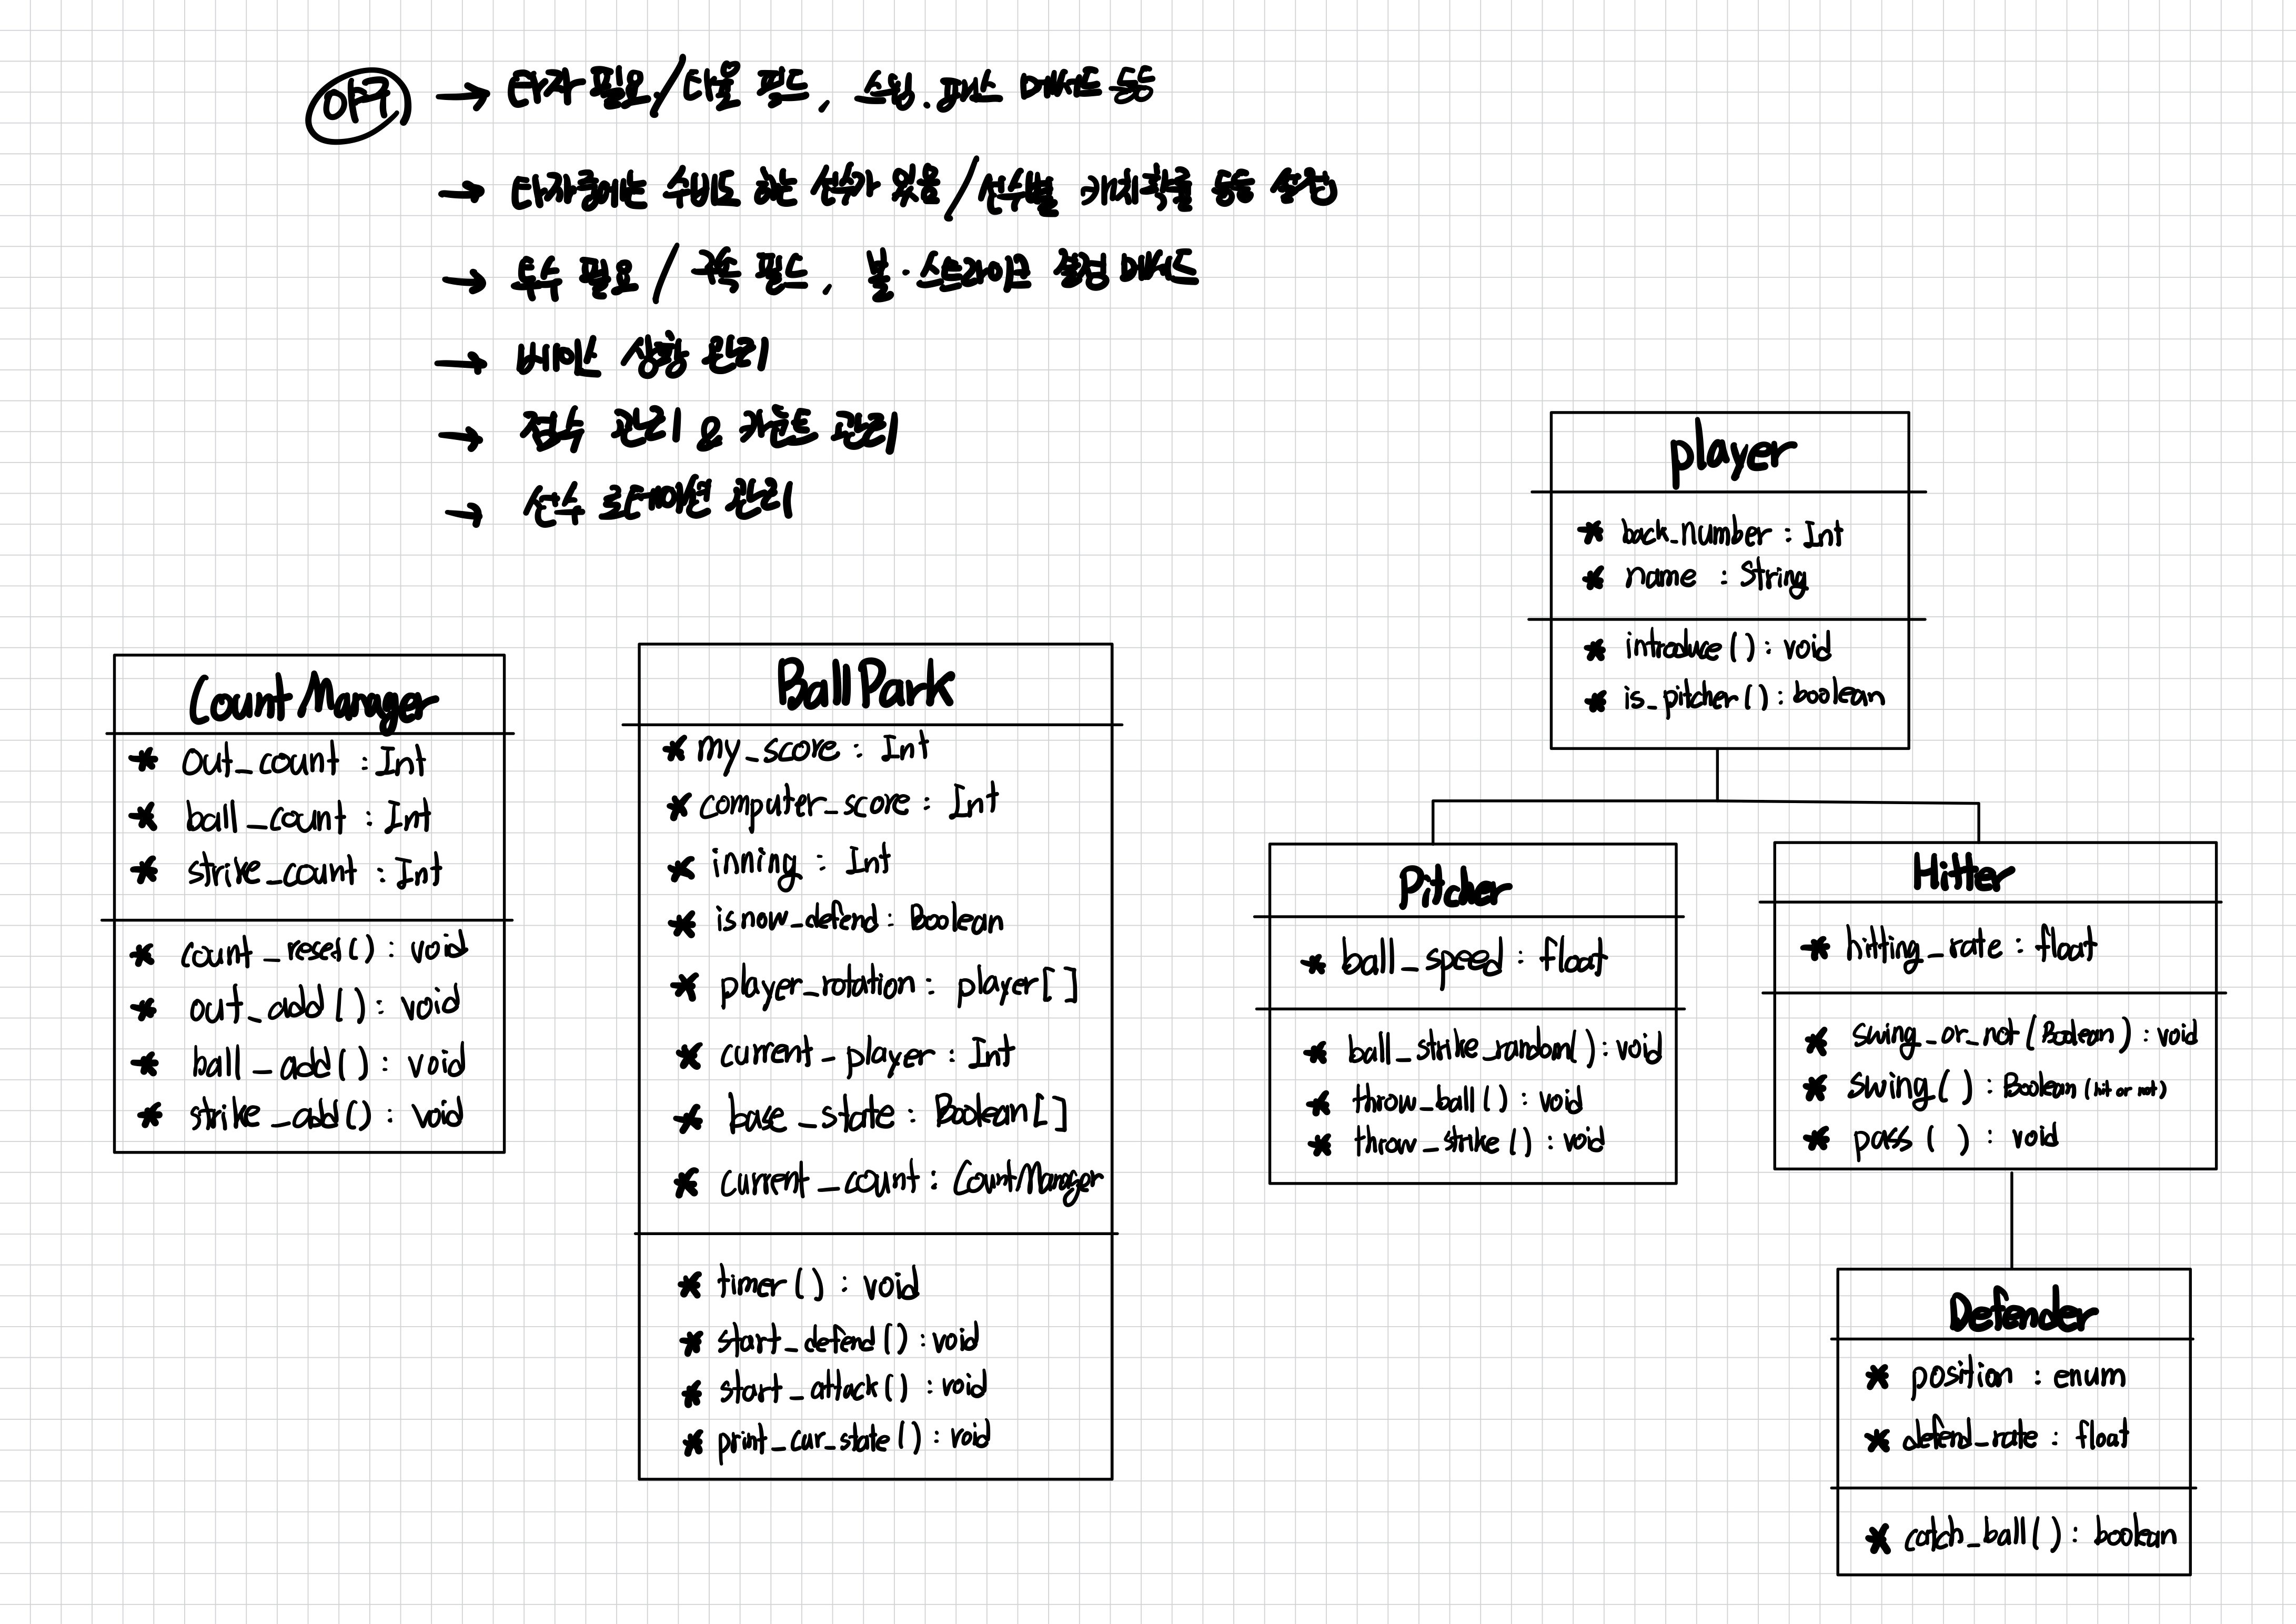 야구 → 타자 필요 / 타율 필드, 스윙. 패스 메서드 등등
→ 타자중에는 수비도 하는 선수가 있음 / 선수별 캐치확률 등등 설정
→ 투수 필요 / 구속 필드, 볼·스트라이크 설정 메서드
→ 베이스 상황 관리
→ 점수 관리 & 카운트 관리
→ 선수 로테이션 관리
Count Manager
* Out_count : Int
* ball_count : Int
* strike_count : Int
* count_reset() : void
* out_add() : void
* ball_add() : void
* strike_add() : void
Ball Park
* my_score : Int
* computer_score : Int
* inning : Int
* is now_defend : Boolean
* player_rotation : player[]
* current_player : Int
* base_state : Boolean[]
* current_count : CountManager
* timer() : void
* start_defend() : void
* start_attack() : void
* print_cur_state() : void
player
* back_number : Int
* name : String
* introduce() : void
* is_pitcher() : boolean
Pitcher
* ball_speed : float
* ball_strike_random() : void
* throw_ball() : void
* throw_strike() : void
Hitter
* hitting_rate : float
* swing_or_not(Boolean) : void
* swing() : Boolean (hit or not)
* pass() : void
Defender
* position : enum
* defend_rate : float
* catch_ball() : boolean